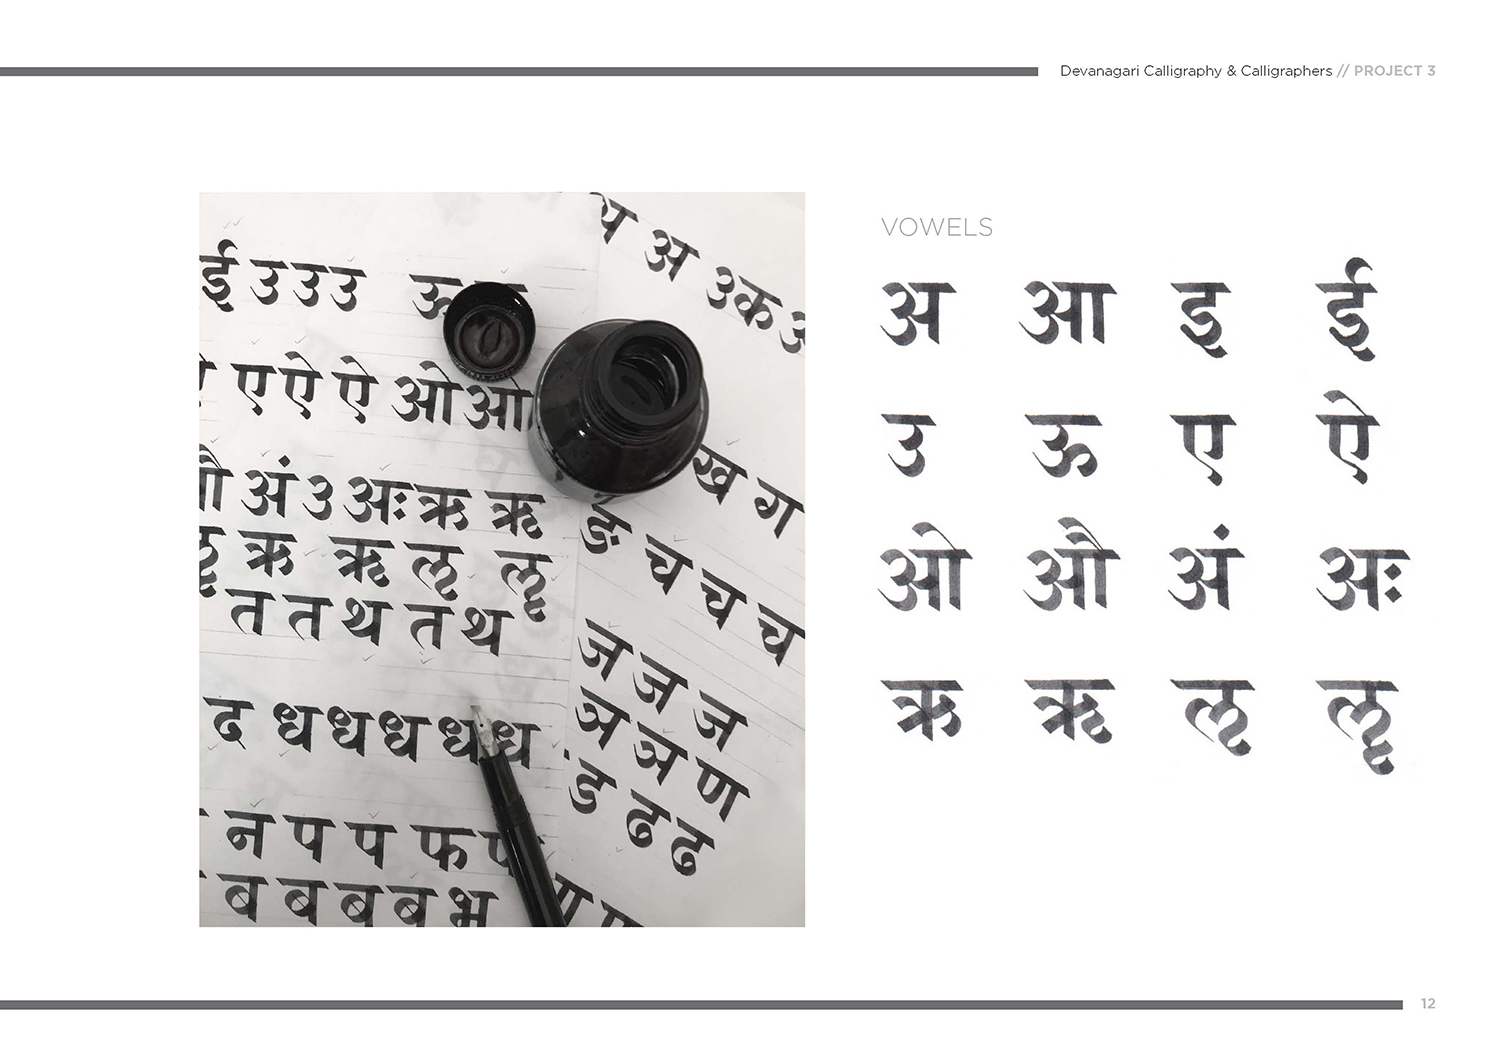 Devanagari Calligraphy & Calligraphers // PROJECT 3
ई उ उ उ ऊ
ए ऐ ऐ ओ ओ
अं उ अः ऋ ऋ
ऋ ॠ ऌ ॡ
त त थ त थ
ढ ध ध ध ध ध
न प प फ
ब ब ब ब भ
अ उ क
ख ग
ङ च च च
ज ज ज
ञ ञ ण
ड ढ ढ
VOWELS
अ आ इ ई
उ ऊ ए ऐ
ओ औ अं अः
ऋ ॠ ऌ ॡ
12